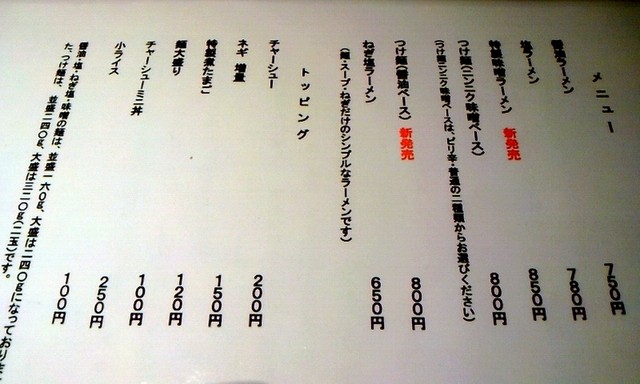 メニュー
醤油ラーメン 750円
塩ラーメン 780円
特製味噌ラーメン 新発売 850円
つけ麺(ニンニク味噌ベース) 800円
(つけ麺ニンニク味噌ベースは、ピリ辛・普通の二種類からお選びください)
つけ麺(醤油ベース) 新発売 800円
ねぎ塩ラーメン 650円
(麺・スープ・ねぎだけのシンプルなラーメンです)
トッピング
チャーシュー 200円
ネギ 増量 150円
特製煮たまご 120円
麺大盛り 100円
チャーシューミニ丼 250円
小ライス 100円
醤油・塩・ねぎ塩・味噌の麺は、並盛一六0g、大盛は二四0gになっており
た、つけ麺は、並盛二四0g、大盛は三二0g(二玉)です。